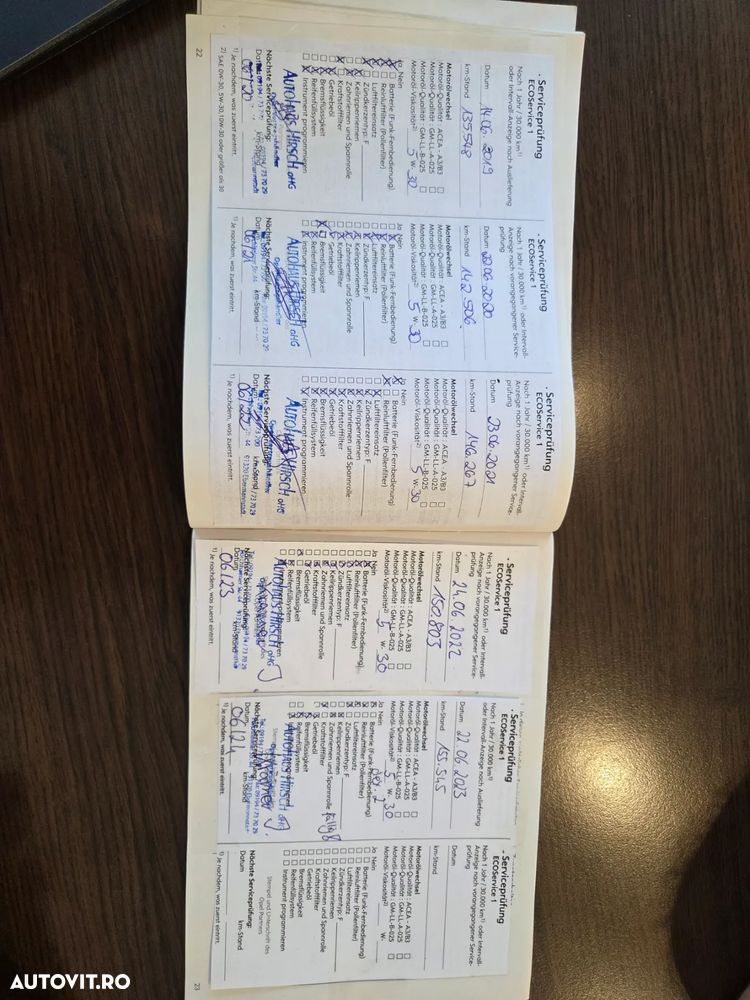 . Serviceprüfung
ECOService 1
Nach 1 Jahr / 30.000 km¹⁾
oder Intervall-Anzeige nach Auslieferung
Datum 14.06.2019
km-Stand 135548
Motorölwechsel
Motoröl-Qualität : ACEA - A3/B3
Motoröl-Qualität : GM-LL-A-025
Motoröl-Qualität : GM-LL-B-025
Motoröl-Viskosität²⁾ 5 W- 30
Ja Nein
Batterie (Funk-Fernbedienung)
Reinluftfilter (Pollenfilter)
Luftfiltereinsatz
Zündkerzentyp: F
Keilrippenriemen
Zahnriemen und Spannrolle
Kraftstofffilter
Getriebeöl
Bremsflüssigkeit
Reifenfüllsystem
Instrument programmieren
AUTOHAUS HIRSCH oHG
Nächste Serviceprüfung:
Datum km-Stand
06/20
1) Je nachdem, was zuerst eintritt.
2) SAE 0W-30, 5W-30, 10W-30 oder größer als 30
22
. Serviceprüfung
ECOService 1
Nach 1 Jahr / 30.000 km¹⁾ oder Intervall-
Anzeige nach vorangegangener Service-
prüfung
Datum 22.06.2020
km-Stand 142.506
Motorölwechsel
Motoröl-Qualität : ACEA - A3/B3
Motoröl-Qualität : GM-LL-A-025
Motoröl-Qualität : GM-LL-B-025
Motoröl-Viskosität²⁾ 5 W- 30
Ja Nein
Batterie (Funk-Fernbedienung)
Reinluftfilter (Pollenfilter)
Luftfiltereinsatz
Zündkerzentyp: F
Keilrippenriemen
Zahnriemen und Spannrolle
Kraftstofffilter
Getriebeöl
Bremsflüssigkeit
Reifenfüllsystem
Instrument programmieren
AUTOHAUS HIRSCH oHG
Nächste Serviceprüfung:
Datum km-Stand
06/21
1) Je nachdem, was zuerst eintritt.
. Serviceprüfung
ECOService 1
Nach 1 Jahr / 30.000 km¹⁾ oder Intervall-
Anzeige nach vorangegangener Service-
prüfung
Datum 23.06.2021
km-Stand 146.267
Motorölwechsel
Motoröl-Qualität : ACEA - A3/B3
Motoröl-Qualität : GM-LL-A-025
Motoröl-Qualität : GM-LL-B-025
Motoröl-Viskosität²⁾ 5 W- 30
Ja Nein
Batterie (Funk-Fernbedienung)
Reinluftfilter (Pollenfilter)
Luftfiltereinsatz
Zündkerzentyp: F
Keilrippenriemen
Zahnriemen und Spannrolle
Kraftstofffilter
Getriebeöl
Bremsflüssigkeit
Reifenfüllsystem
Instrument programmieren
AUTOHAUS HIRSCH oHG
Nächste Serviceprüfung:
Datum km-Stand
06/22
1) Je nachdem, was zuerst eintritt.
. Serviceprüfung
ECOService 1
Nach 1 Jahr / 30.000 km¹⁾ oder Intervall-
Anzeige nach vorangegangener Service-
prüfung
Datum 24.06.2022
km-Stand 150.803
Motorölwechsel
Motoröl-Qualität : ACEA - A3/B3
Motoröl-Qualität : GM-LL-A-025
Motoröl-Qualität : GM-LL-B-025
Motoröl-Viskosität²⁾ 5 W- 30
Ja Nein
Batterie (Funk-Fernbedienung)
Reinluftfilter (Pollenfilter)
Luftfiltereinsatz
Zündkerzentyp: F
Keilrippenriemen
Zahnriemen und Spannrolle
Kraftstofffilter
Getriebeöl
Bremsflüssigkeit
Reifenfüllsystem
AUTOHAUS HIRSCH oHG
Nächste Serviceprüfung:
Datum km-Stand
06/23
1) Je nachdem, was zuerst eintritt.
. Serviceprüfung
ECOService 1
Nach 1 Jahr / 30.000 km¹⁾
oder Intervall-Anzeige nach Auslieferung
Datum 22.06.2023
km-Stand 155.545
Motorölwechsel
Motoröl-Qualität : ACEA - A3/B3
Motoröl-Qualität : GM-LL-A-025
Motoröl-Qualität : GM-LL-B-025
Motoröl-Viskosität²⁾ 5 W- 30
Ja Nein
Batterie (Funk-Fernbedienung)
Reinluftfilter (Pollenfilter)
Luftfiltereinsatz
Zündkerzentyp: F
Keilrippenriemen
Zahnriemen und Spannrolle
Kraftstofffilter
Getriebeöl
Bremsflüssigkeit
Reifenfüllsystem
AUTOHAUS HIRSCH oHG
Datum km-Stand
06/24
1) Je nachdem, was zuerst eintritt.
. Serviceprüfung
ECOService 1
Nach 1 Jahr / 30.000 km¹⁾ oder Intervall-
Anzeige nach vorangegangener Service-
prüfung
Datum
km-Stand
Motorölwechsel
Motoröl-Qualität : ACEA - A3/B3
Motoröl-Qualität : GM-LL-A-025
Motoröl-Qualität : GM-LL-B-025
Motoröl-Viskosität²⁾ W-
Ja Nein
Batterie (Funk-Fernbedienung)
Reinluftfilter (Pollenfilter)
Luftfiltereinsatz
Zündkerzentyp: F
Keilrippenriemen
Zahnriemen und Spannrolle
Kraftstofffilter
Getriebeöl
Bremsflüssigkeit
Reifenfüllsystem
Instrument programmieren
Stempel und Unterschrift des
Opel Partners
Nächste Serviceprüfung:
Datum km-Stand
1) Je nachdem, was zuerst eintritt.
23
AUTOVIT.RO